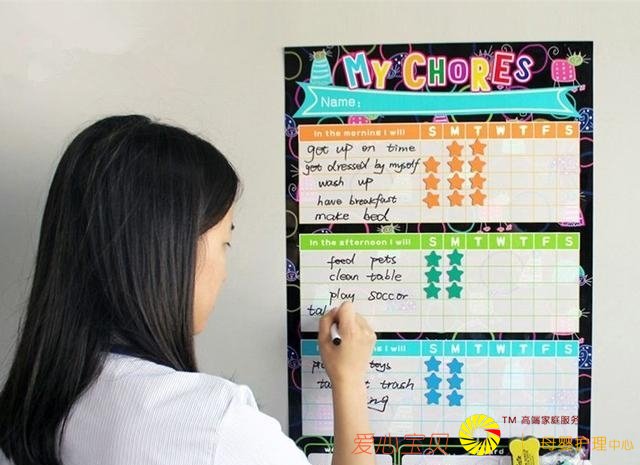 MY CHORES
Name:
In the morning I will S M T W T F S
got up on time
got dressed by myself
wash up
have breakfast
make bed
In the afternoon I will S M T W T F S
food pets
clean table
play soccor
ing I will S M T W T F S
toys
trash
TM 高端家庭服务
爱心宝贝 母婴护理中心